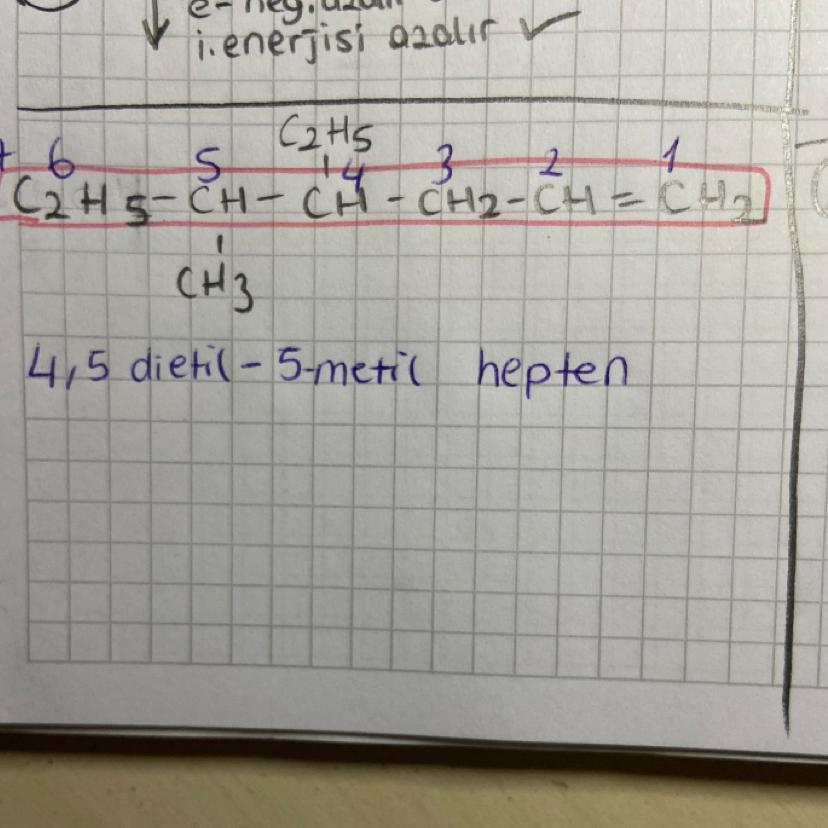 i.enerjisi azalır ✓
C2H5
6 5 4 3 2 1
C2H5-CH-CH-CH2-CH=CH2
CH3
4,5 dietil-5-metil hepten